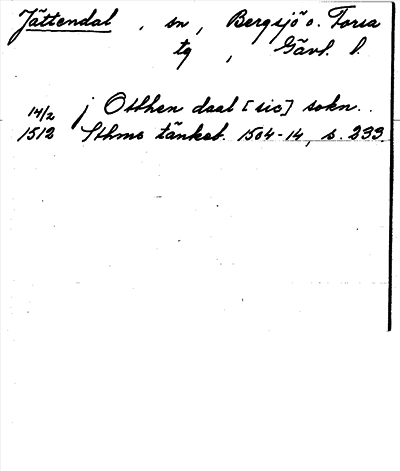 Jättendal, sn, Bergsjö o. Forsa
tg, Gävl. l.
14/2 j Otthen daal [sic] sokn..
1512 Sthms tänkeb. 1504-14, s. 233.